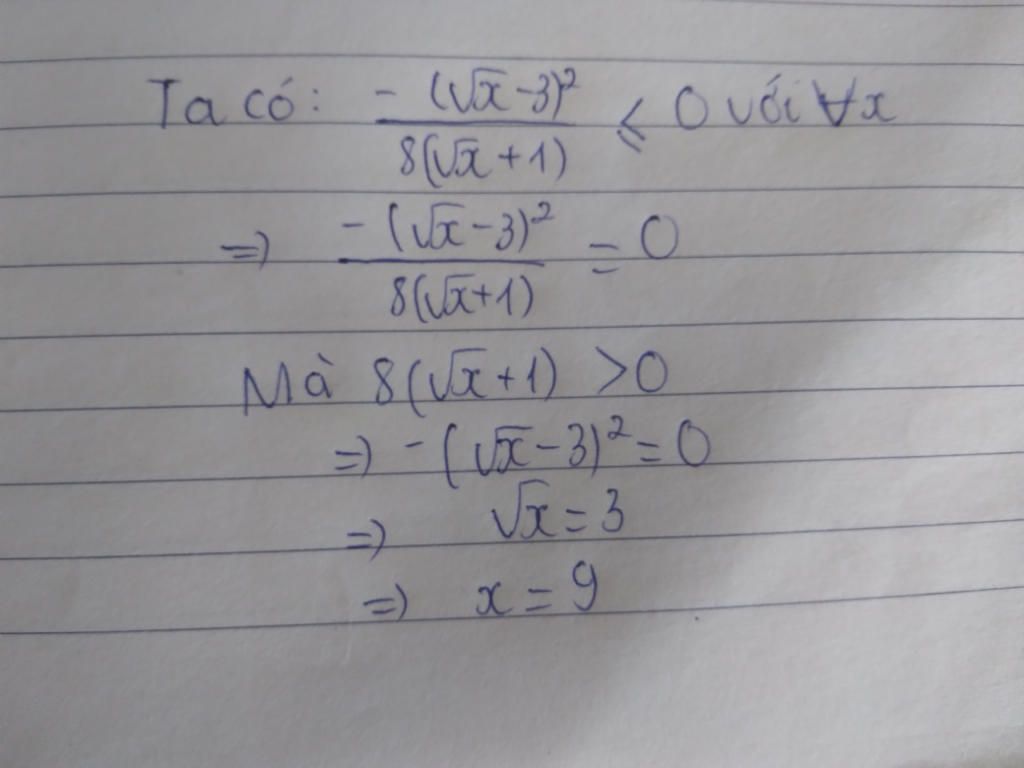 Ta có: -(√x-3)²/8(√x+1) ≤ 0 với ∀x
=> -(√x-3)²/8(√x+1) = 0
Mà 8(√x+1) >0
=> -(√x-3)²=0
=> √x=3
=> x=9